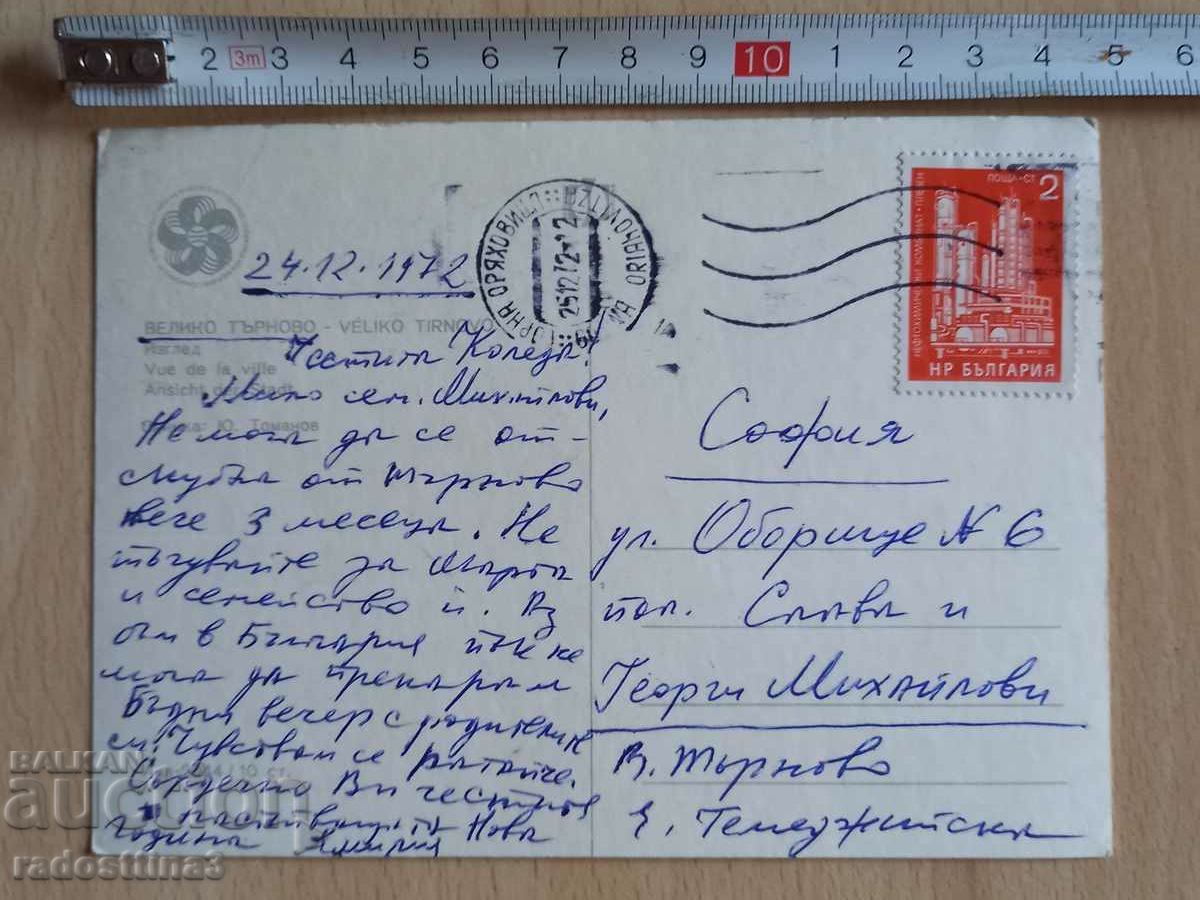 2 3m 3 4 5 6 7 8 9 10 1 2 3 4 5 6
24.12.1972
ВЕЛИКО ТЪРНОВО - VÉLIKO TIRNOVO
Изглед
Vue de la ville
Ansicht der Stadt
Ю. Томанов
ГОРНА ОРЯХОВИЦА
25.12.72
ПОЩА·СТ 2
НЕФТОХИМИЧЕСКИ КОМБИНАТ·ПЛЕВЕН
НР БЪЛГАРИЯ
Честита Коледа!
Мило сем. Михайлови,
Не мога да се от-
скубна от Търново
вече 3 месеца. Не
тъгувайте за Марта
и семейство ѝ. Аз
съм в България пък не
мога да прекарам
Бъдни вечер с родителите
си. Чувствам се
Сърдечно Ви честитя
настъпващата Нова
година
София
ул. Оборище № 6
пол. Слава и
Георги Михайлови
В. Търново
Е. Темеджийска
10 ст.
BALKAN
auction
radosttina3